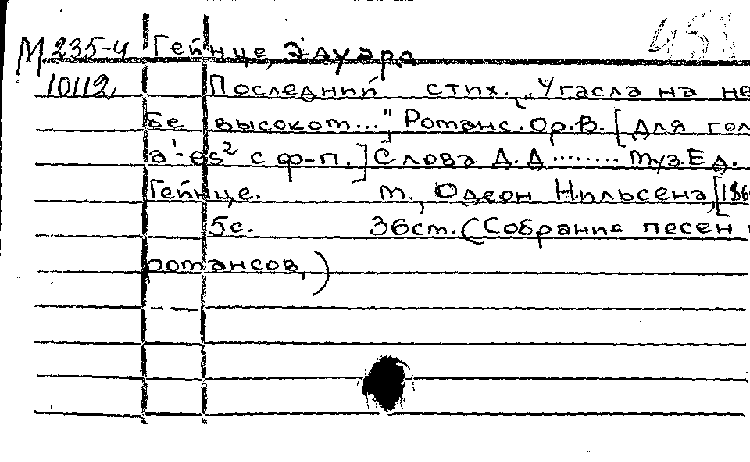 451
М 235-4 Гейнце, Эдуард
10112, Последний стих. „Угасла на не
бе высоком...", Романс. Op. В. [Для гол
a'-es² с ф-п.] Слова Д. Д........ муз. Ед.
Гейнце. М., Одеон Нильсена, [186
5с. 36см. (Собрание песен
романсов,)